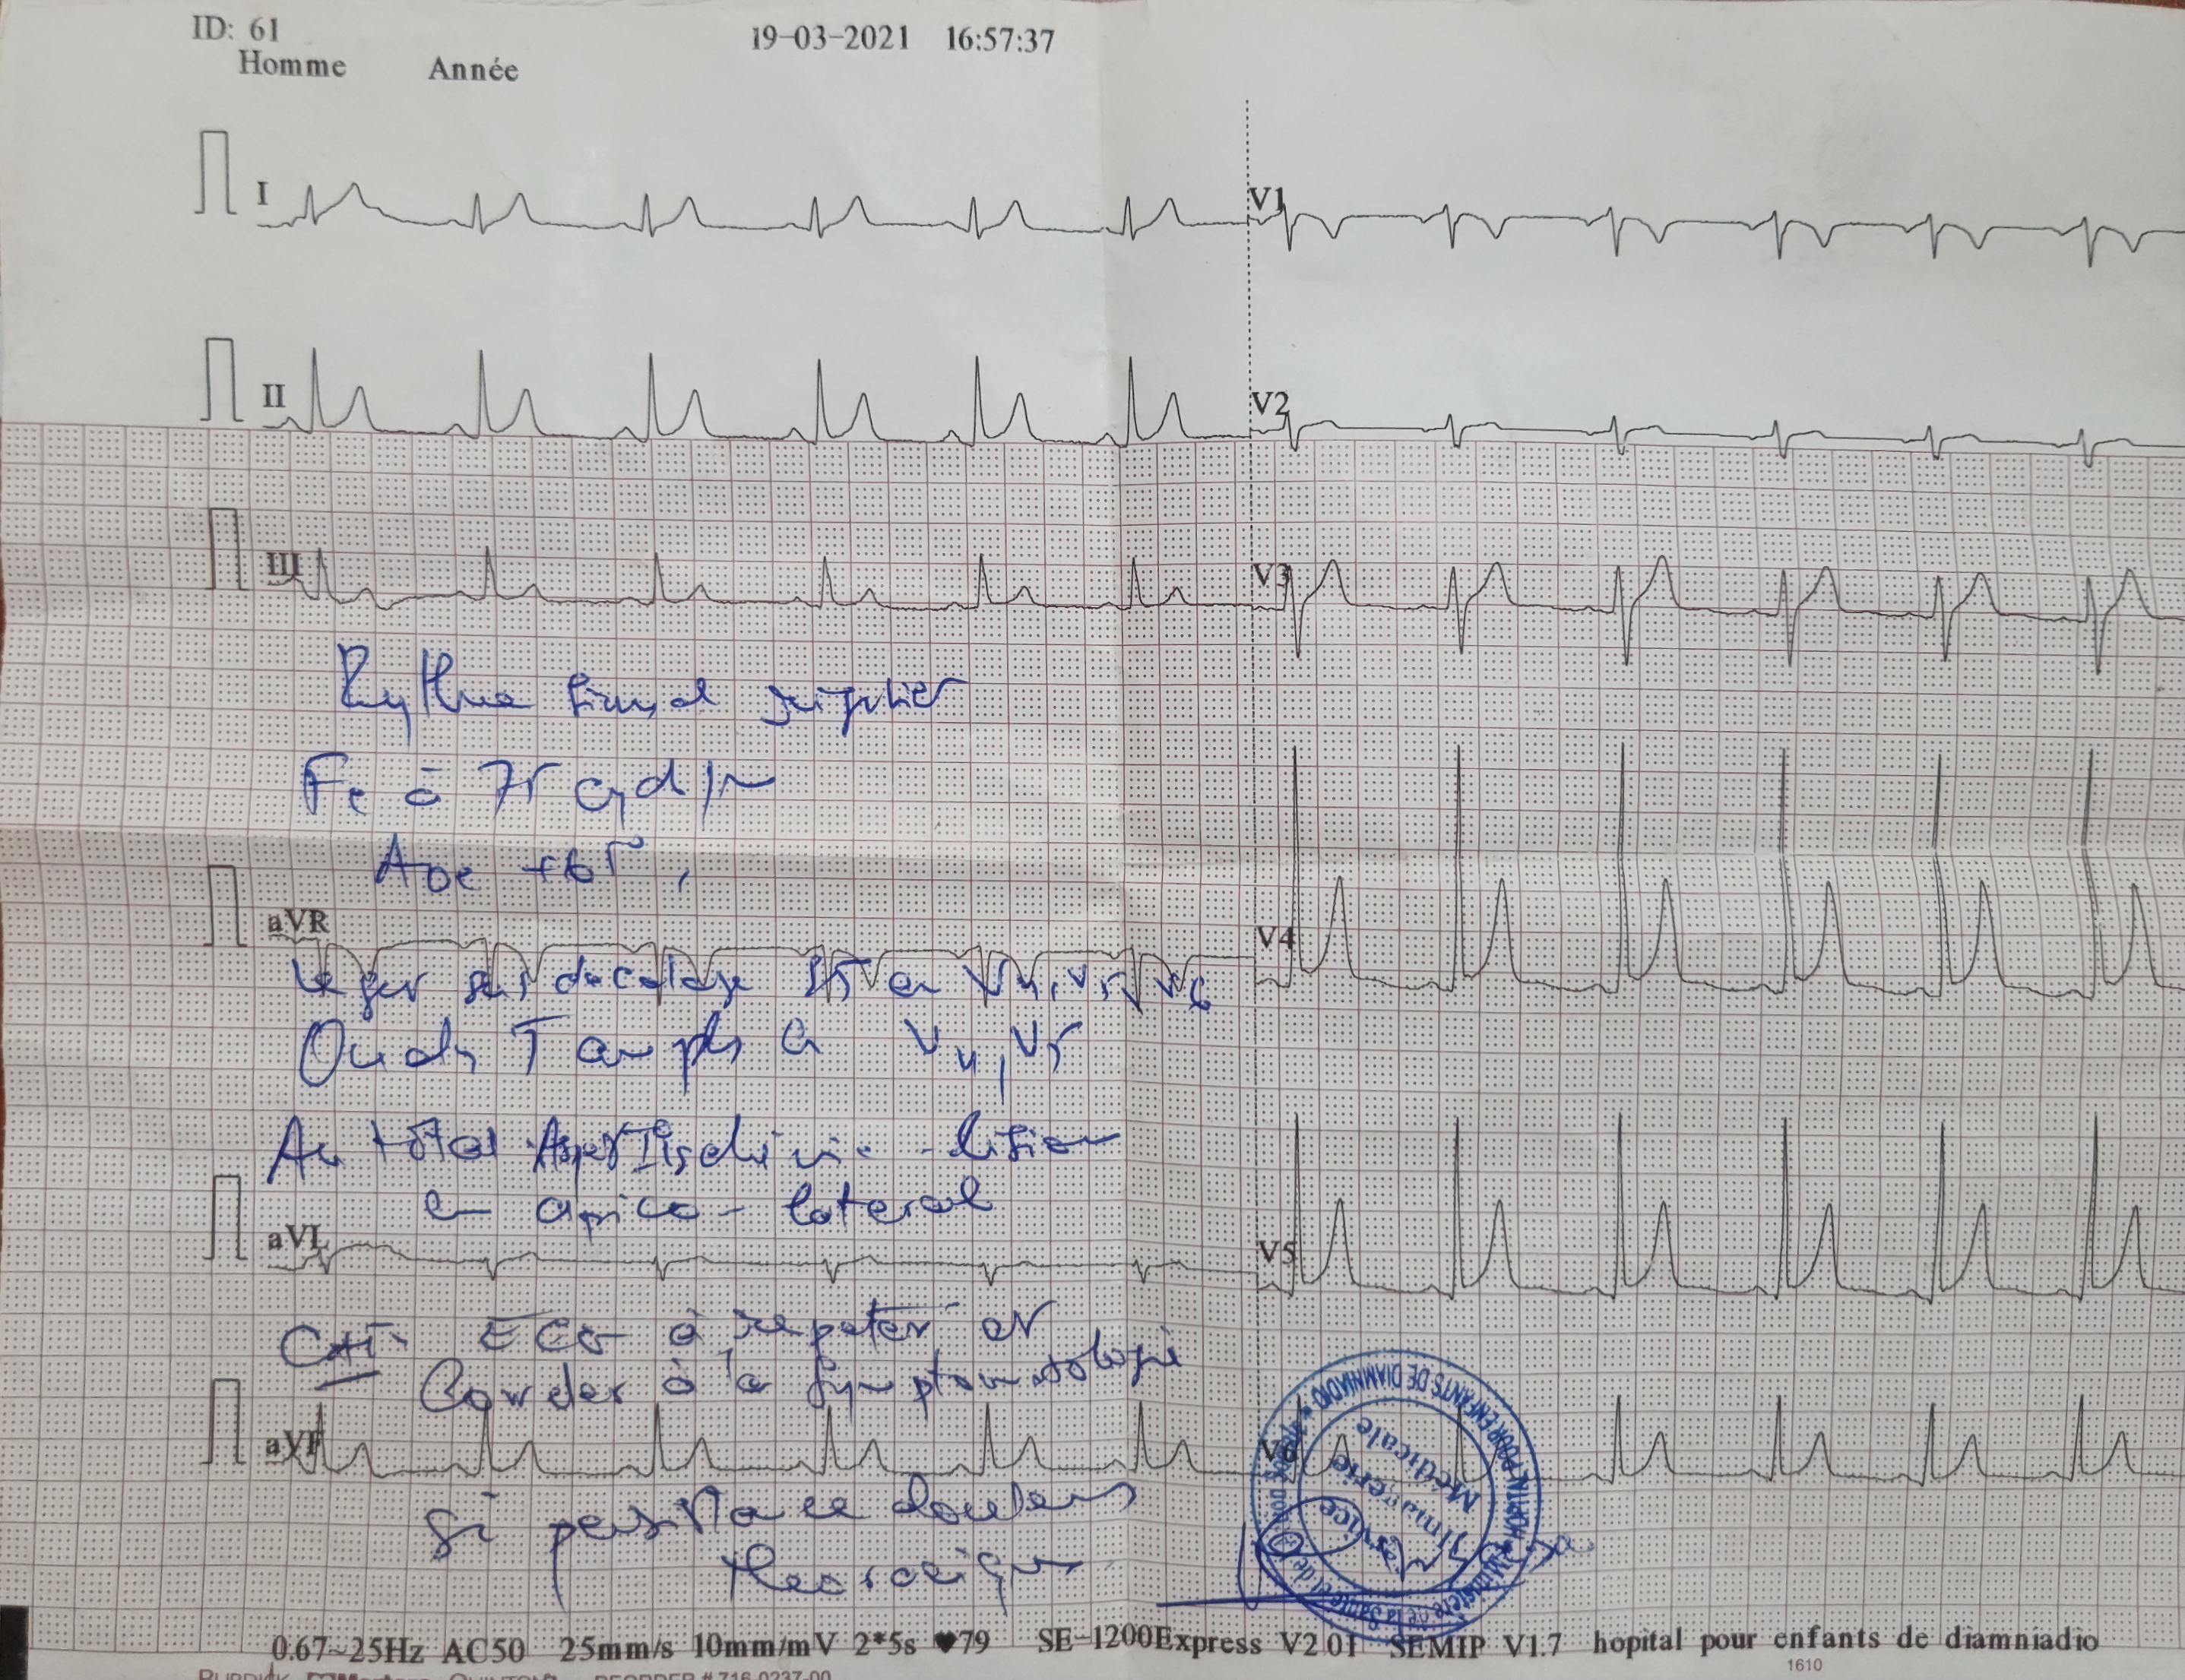 ID: 61
19-03-2021 16:57:37
Homme Année
I
V1
II
V2
III
V3
Rythme sinusal régulier
Fc à 75 cyd/
Axe
aVR
V4
Léger sus décalage ST en V4, V5, V6
Ondes T amples en V4, V5
Au total Aspect Ischémie-lésion
en apico-latéral
aVL
V5
CAT: ECG à répéter et
à la symptomatologie
aVF
V6
Si persistance douleur
thoracique
HOPITAL POUR ENFANTS DE DIAMNIADIO
Ministère de la Santé et de
Service
Imagerie
Médicale
0.67~25Hz AC50 25mm/s 10mm/mV 2*5s ♥79 SE-1200Express V2.01 SEMIP V1.7 hopital pour enfants de diamniadio
1610